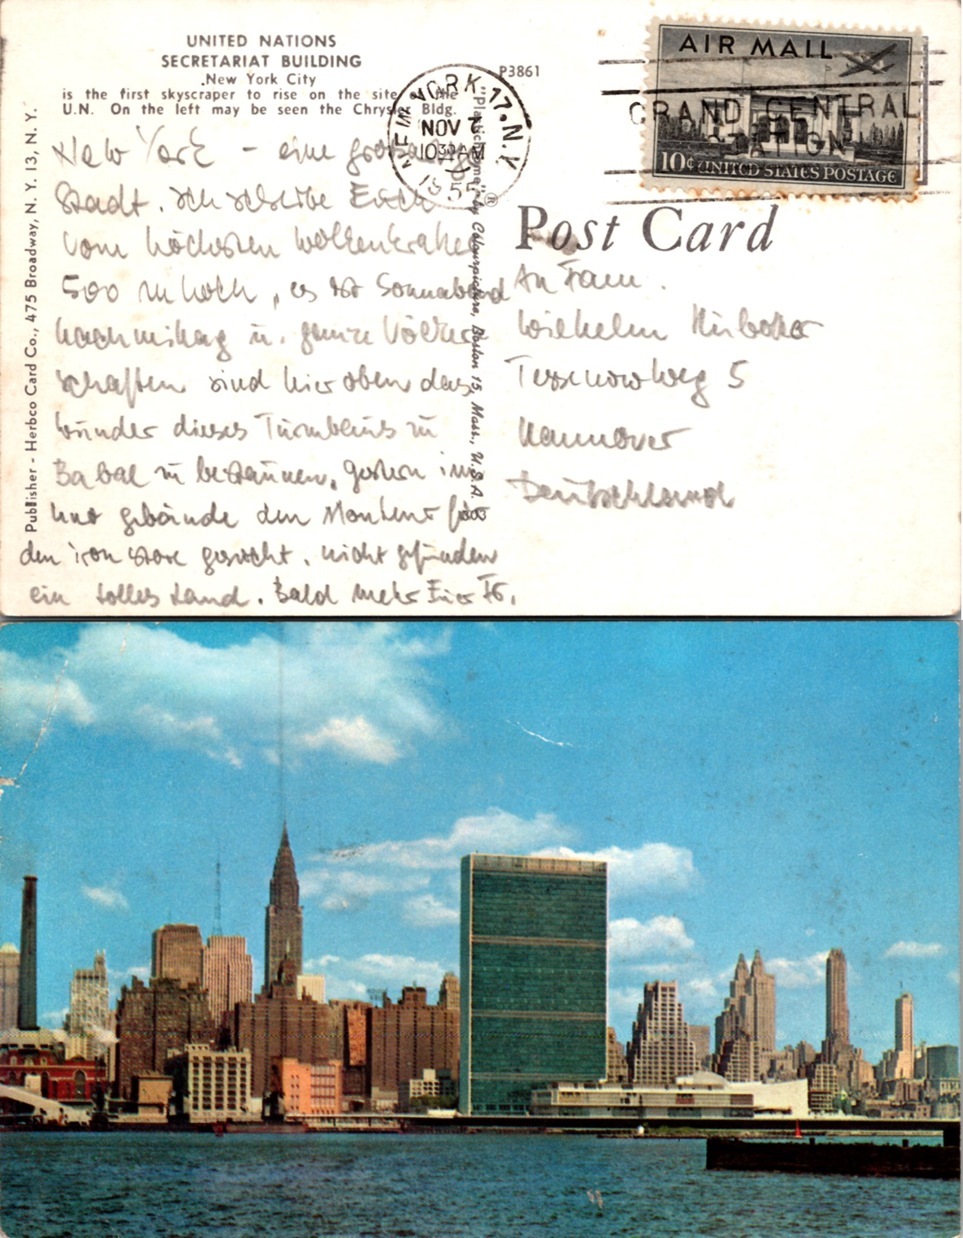 UNITED NATIONS
SECRETARIAT BUILDING
New York City
is the first skyscraper to rise on the site of the
U.N. On the left may be seen the Chrysler Bldg.
P3861
NEW YORK 17. N.Y.
NOV
1030 AM
195
AIR MAIL
GRAND CENTRAL
STATION
10¢ UNITED STATES POSTAGE
Publisher - Herbco Card Co., 475 Broadway, N. Y. 13, N. Y.
by Colourpicture, Boston 15, Mass., U.S.A.
®
Post Card
New York – eine großartige
Stadt. Ich schreibe Euch
vom höchsten Wolkenkratzer
500 m hoch, es ist Sonnabend
nachmittag u. ganze Völker
schaften sind hier oben das
Wunder dieses Turmbaus zu
Babel zu bestaunen, gestern im
gebäude den
den gesucht, nicht gefunden
ein tolles Land. Bald mehr Euer
An Fam.
Wilhelm
5
Hannover
Deutschland